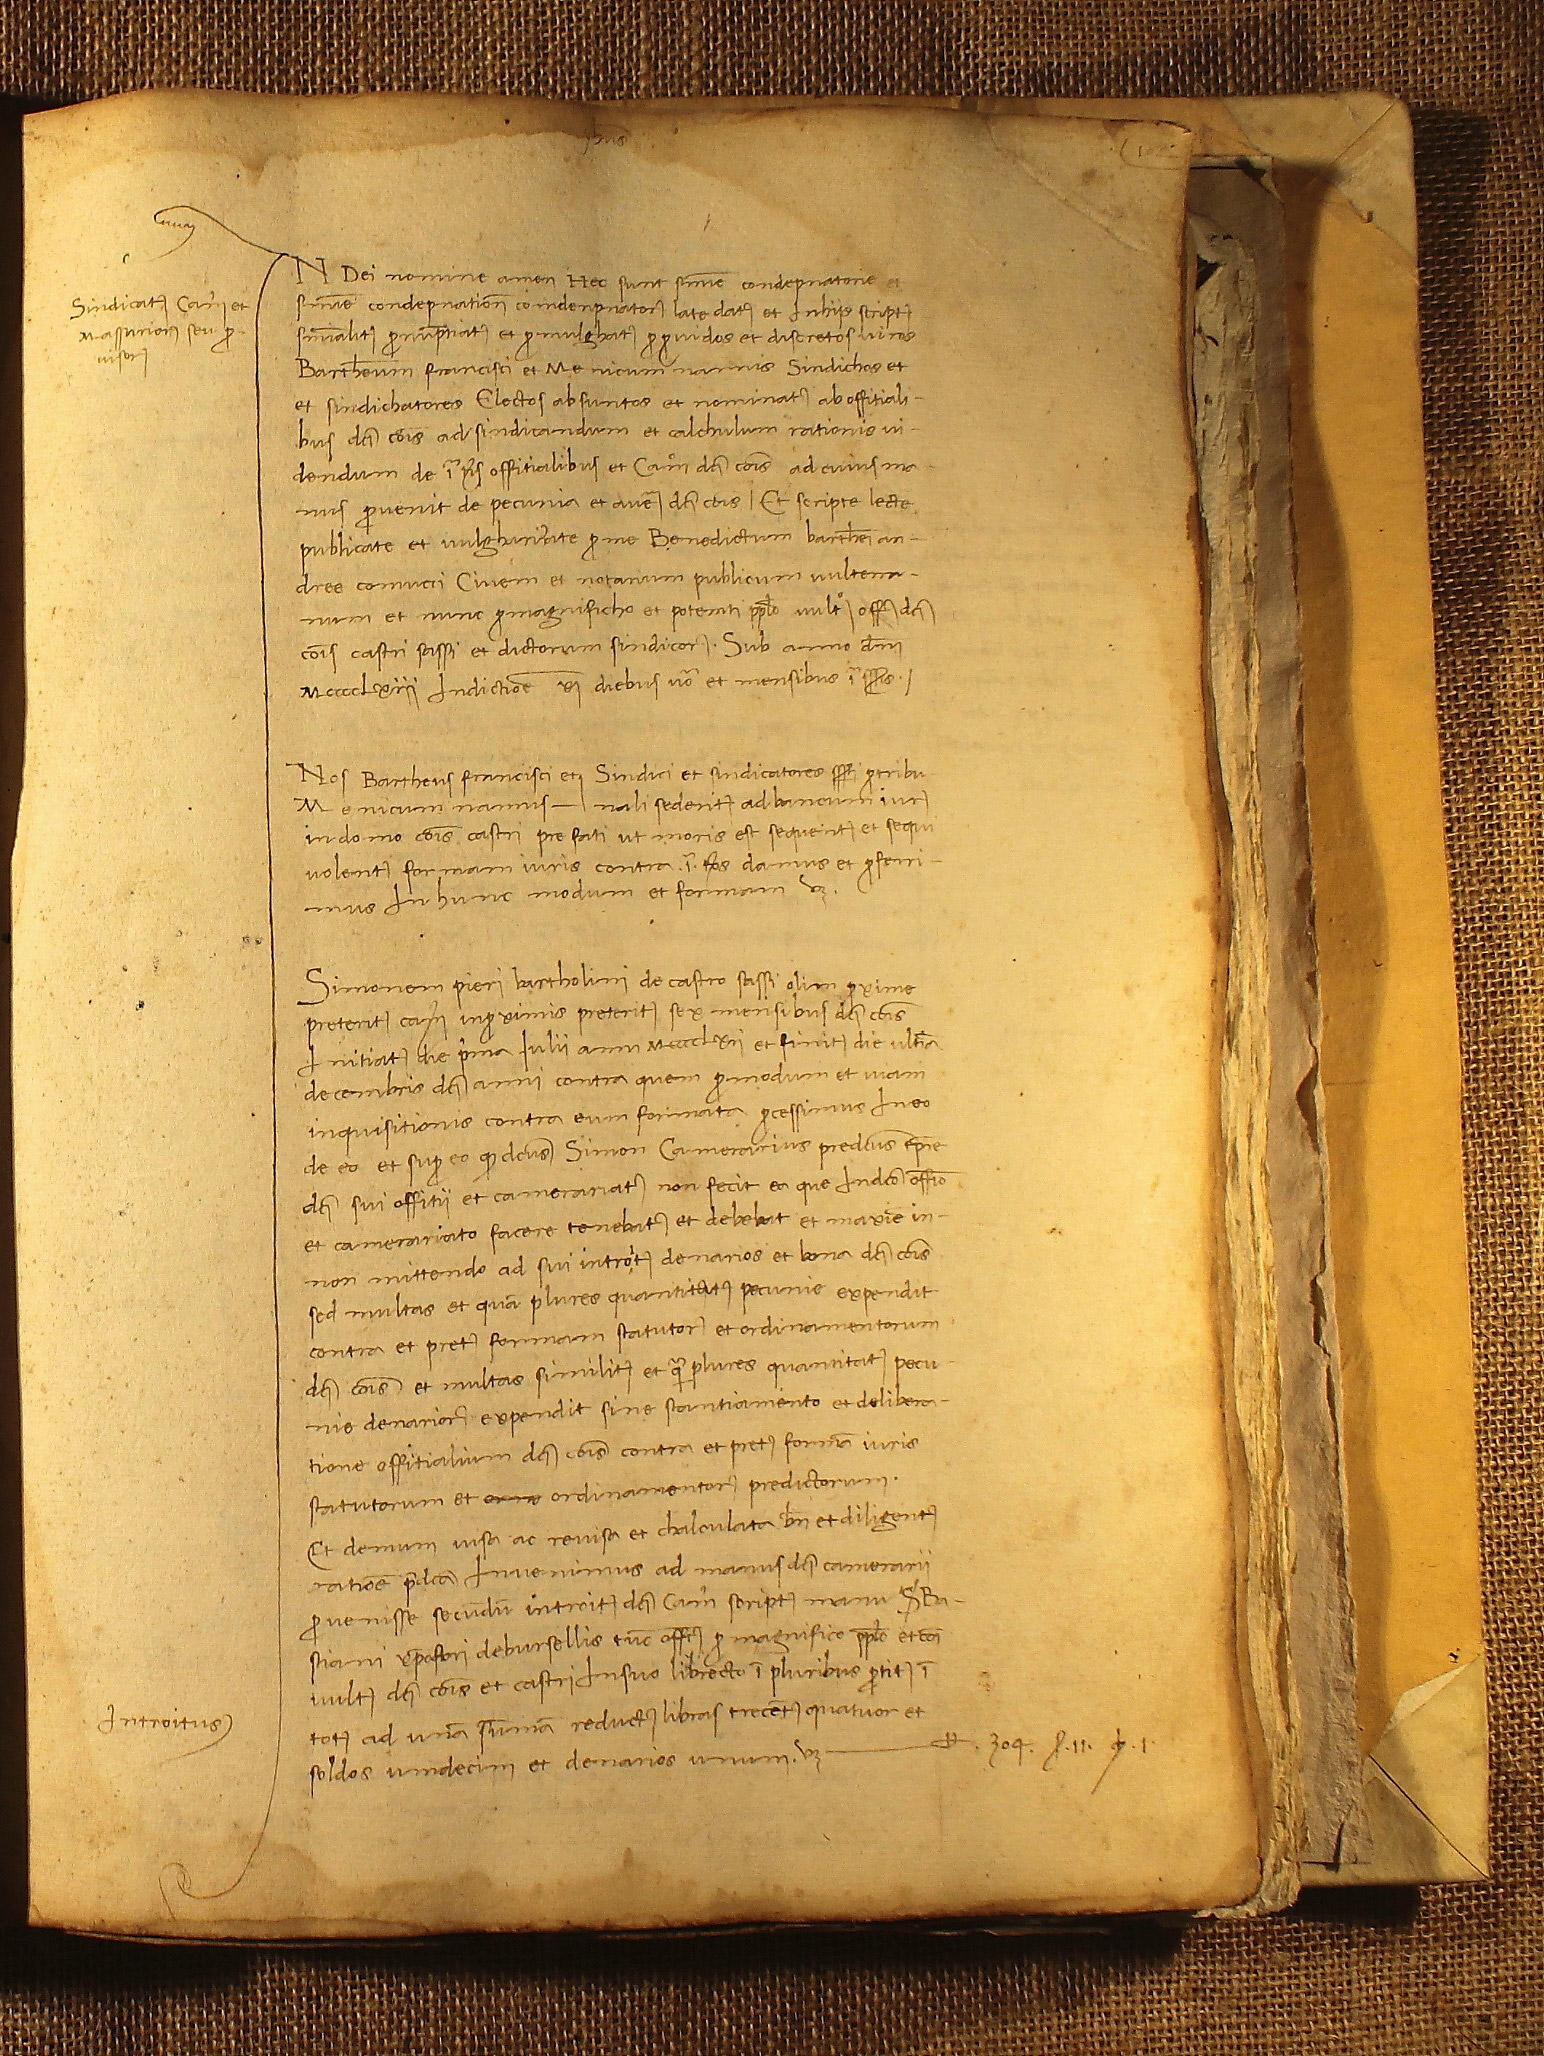 yhus
Sindicatus Camerarii et
Massariorum seu pro-
visorum
IN Dei nomine amen Hec sunt summe condepnatorie et
summe condepnationum comdenpnatorum late date et In hijs scriptis
summaliter pronumptiate et promulghate per providos et discretos viros
Bartheum francisci et Menicum nannis Sindichos et
et sindichatores Electos absuntos et nominatos ab offitiali-
bus dicti cois ad sindicandum et calchulum rationis vi-
dendum de offitialibus et Camerario dicti cois ad cuius ma-
nus provenit de pecunia et avere dicti cois / Et scripte lecte
publicate et vulgharizate per me Benedictum barthei an-
dree comucci Civem et notarium publicum vulterra-
num et nunc pro magnificho et potenti pplo vult off dicti
cois castri sassi et dictorum sindicor. Sub anno dni
Mcccclxiii Indictioe xi diebus vo et mensibus
Nos Bartheus francisci et Sindici et sindicatores tribu
Menicum nannis — nali sedentes ad bancum iuris
in domo cois castri prefati ut moris est sequentes et sequi
volentes formam iuris contra damus et proferi-
mus In hunc modum et formam vz.
Simonem pieri bartholini de castro sassi olim proxime
preteriti camerarii in proximis preteritis sex mensibus dicti cois
Initiatis die prima Iulii anni Mcccclxii et finitis die ultima
decembris dicti anni contra quem per modum et viam
inquisitionis contra eum formata processimus In eo
de eo et super eo quod dictus Simon Camerarius predictus tempore
dicti sui offitii et camerariatus non fecit ea que In dicto offitio
et camerariato facere tenebatur et debebat et maxime in-
non mittendo ad sui introitus denarios et bona dicti cois
sed multas et quam plures quantitates pecunie expendit
contra et preter formam statutorum et ordinamentorum
dicti cois et multas similiter et quam plures quantitates pecu-
nie denariorum expendit sine stantiamento et delibera-
tione offitialium dicti cois contra et preter formam iuris
statutorum et ordinamentorum predictorum.
Et demum visa ac revisa et chalculata bene et diligenter
ratione predicta Invenimus ad manus dicti camerarii
provenisse secundum introitus dicti Camerarii scriptos manu S Ba-
stiani xpofori de bursellis tunc offitialis pro magnifico pplo et coi
vult dicti cois et castri In suo librecto in pluribus partitis in
totum ad unam summam reductis libras trecentas quatuor et
soldos undecim et denarios unum. vz — ℔. 304. s. 11. d. 1.
Introitus